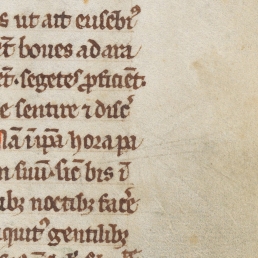 s ut ait eusebiꝰ
et̄ boues ad ara
et̄. segetes ꝓficient.
e sentire ⁊ disc̄
Nā ī ip̄a hora pa
n suū. sic̄ bis ī
ibꝫ noctibꝫ fac̄e
quitꝰ gentilibꝫ